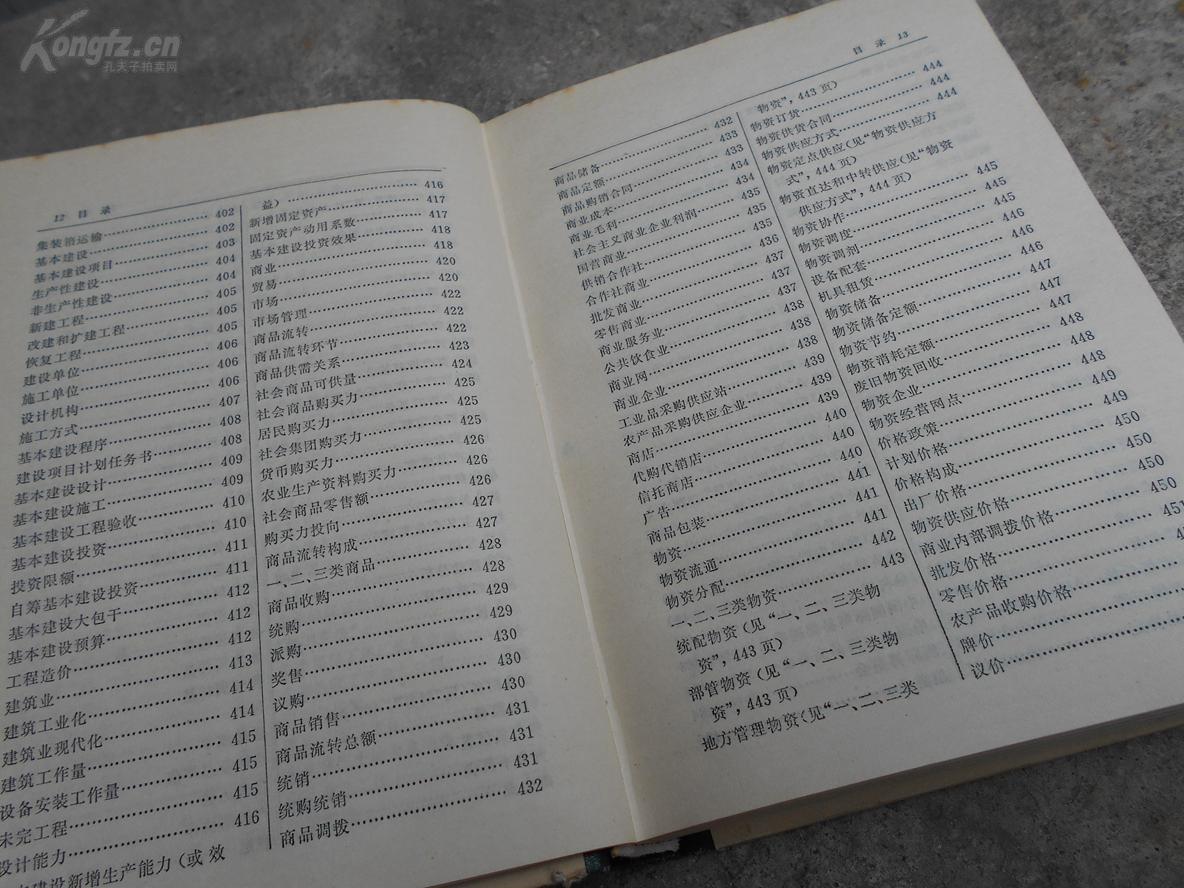 12 目 录
集装箱运输 402
基本建设 402
基本建设项目 403
生产性建设 404
非生产性建设 404
新建工程 405
改建和扩建工程 405
恢复工程 405
建设单位 406
施工单位 406
设计机构 406
施工方式 407
基本建设程序 408
建设项目计划任务书 408
基本建设设计 409
基本建设施工 409
基本建设工程验收 410
基本建设投资 410
投资限额 411
自筹基本建设投资 411
基本建设大包干 412
基本建设预算 412
工程造价 413
建筑业 414
建筑工业化 414
建筑业现代化 415
建筑工作量 415
设备安装工作量 415
未完工程
设计能力 416
建设新增生产能力(或效
益) 416
新增固定资产 417
固定资产动用系数 417
基本建设投资效果 418
商业 418
贸易 420
市场 420
市场管理 422
商品流转 422
商品流转环节
商品供需关系 423
社会商品可供量 424
社会商品购买力 425
居民购买力 425
社会集团购买力 425
货币购买力 426
农业生产资料购买力 426
社会商品零售额 426
购买力投向 427
商品流转构成 427
一、二、三类商品 428
商品收购 428
统购 429
派购 429
奖售 430
议购 430
商品销售 430
商品流转总额 431
统销 431
统购统销 431
商品调拨 432
目 录 13
商品储备 432
商品定额 433
商品购销合同 433
商业成本 434
商业毛利 434
社会主义商业企业利润 435
国营商业 435
供销合作社 435
合作社商业 436
批发商业 437
零售商业 437
商业服务业 438
公共饮食业 438
商业网 438
商业企业 439
工业品采购供应站 439
农产品采购供应企业 439
商店 440
代购代销店 440
信托商店 440
广告 441
商品包装 441
物资 441
物资流通 442
物资分配 443
一、二、三类物资
统配物资(见“一、二、三类物
资”,443页)
部管物资(见“一、二、三类物
资”,443页)
地方管理物资(见“一、二、三类
物资”,443页)
物资订货 444
物资供货合同 444
物资供应方式 444
物资定点供应(见“物资供应方
式”,444页)
物资直达和中转供应(见“物资
供应方式”,444页)
物资协作 445
物资调度 445
物资调剂 445
设备配套 446
机具租赁 446
物资储备 447
物资储备定额 447
物资节约 448
物资消耗定额 448
废旧物资回收 449
物资企业 449
物资经营网点 450
价格政策 450
计划价格 450
价格构成 450
出厂价格 451
物资供应价格
商业内部调拨价格
批发价格
零售价格
农产品收购价格
牌价
议价
Kongfz.cn
孔夫子拍卖网